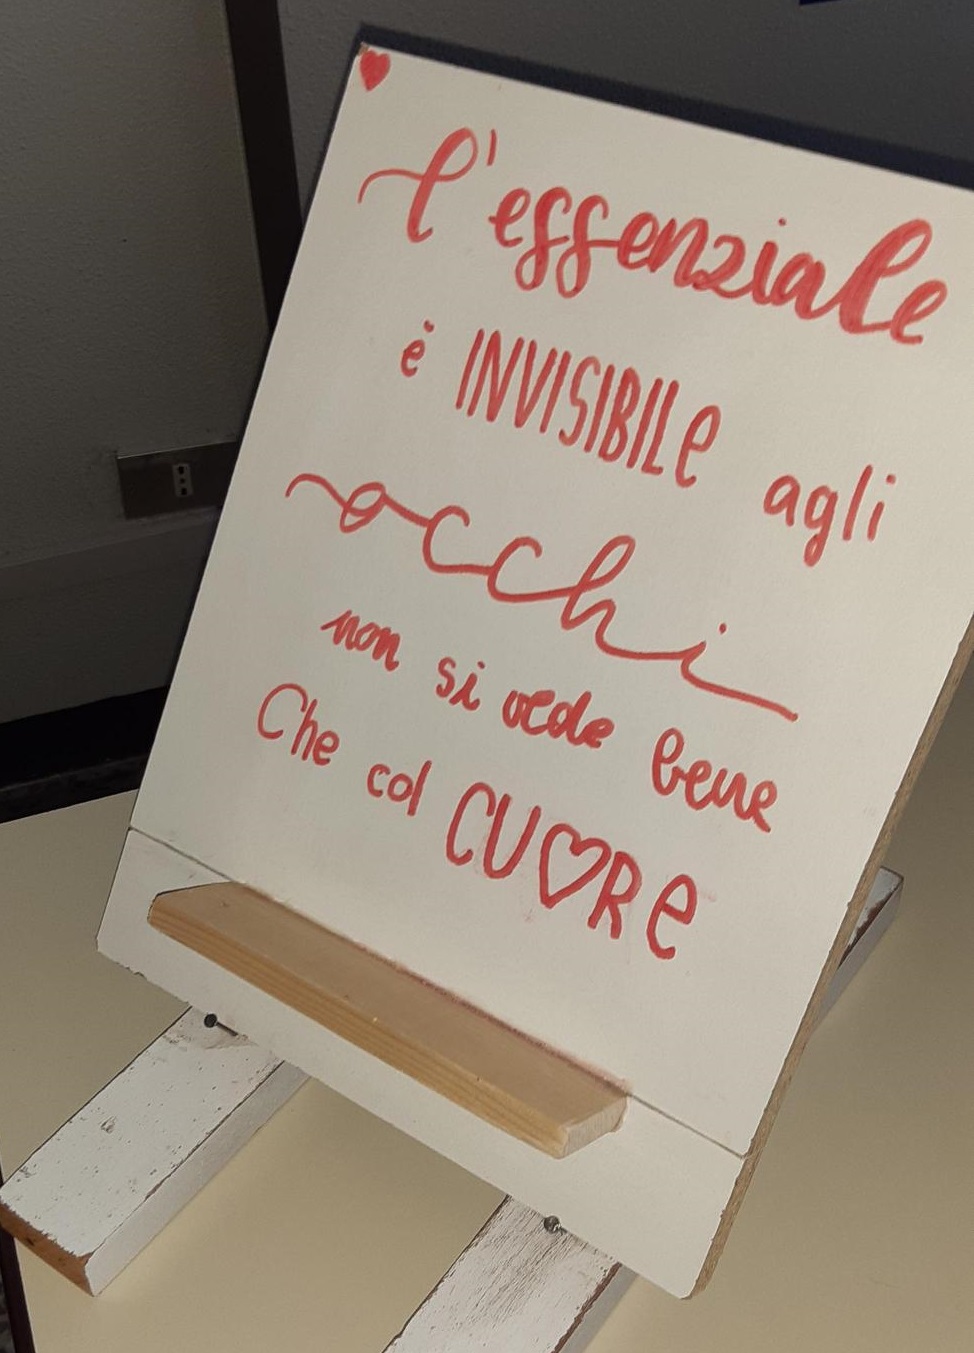 l'essenziale
è INVISIBILe agli
occhi
non si vede bene
Che col CUORe